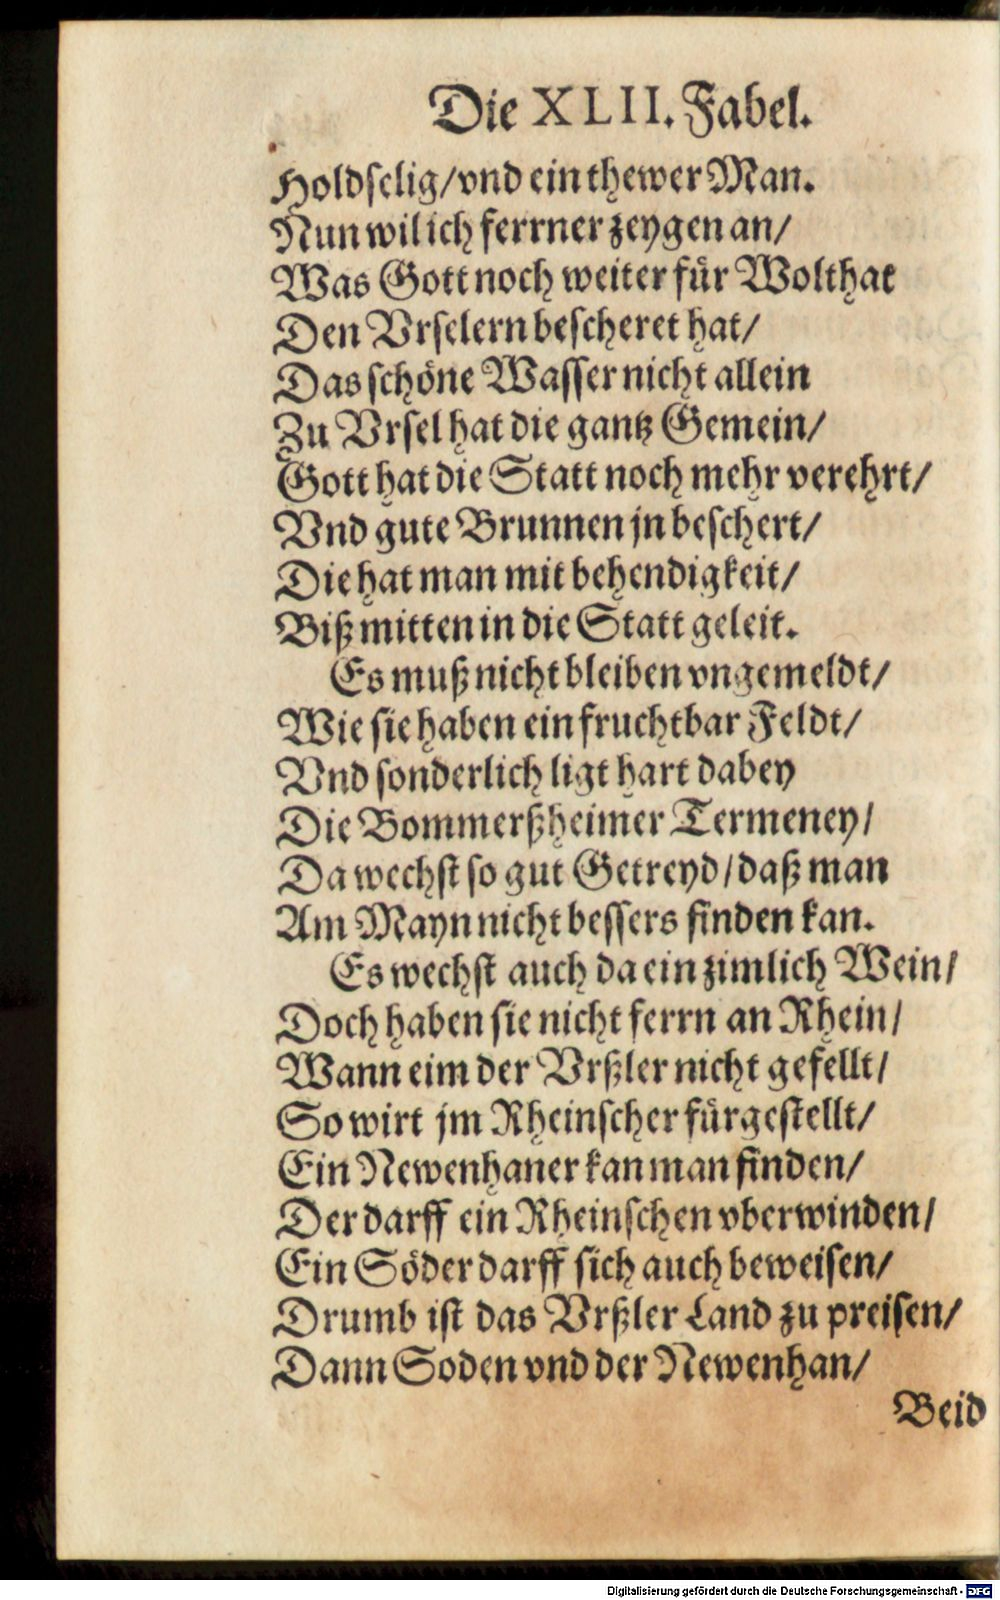 Die XLII. Fabel.
Holdselig/vnd ein thewer Man.
Nun wil ich ferrner zeygen an/
Was Gott noch weiter für Wolthat
Den Vrselern bescheret hat/
Das schöne Wasser nicht allein
Zu Vrsel hat die gantz Gemein/
Gott hat die Statt noch mehr verehrt/
Vnd gute Brunnen jn beschert/
Die hat man mit behendigkeit/
Biß mitten in die Statt geleit.
Es muß nicht bleiben vngemeldt/
Wie sie haben ein fruchtbar Feldt/
Vnd sonderlich ligt hart dabey
Die Bommerßheimer Termeney/
Da wechst so gut Getreyd/daß man
Am Mayn nicht bessers finden kan.
Es wechst auch da ein zimlich Wein/
Doch haben sie nicht ferrn an Rhein/
Wann eim der Vrßler nicht gefellt/
So wirt jm Rheinscher fürgestellt/
Ein Newenhaner kan man finden/
Der darff ein Rheinschen vberwinden/
Ein Söder darff sich auch beweisen/
Drumb ist das Vrßler Land zu preisen/
Dann Soden vnd der Newenhan/
Beid
Digitalisierung gefördert durch die Deutsche Forschungsgemeinschaft - DFG